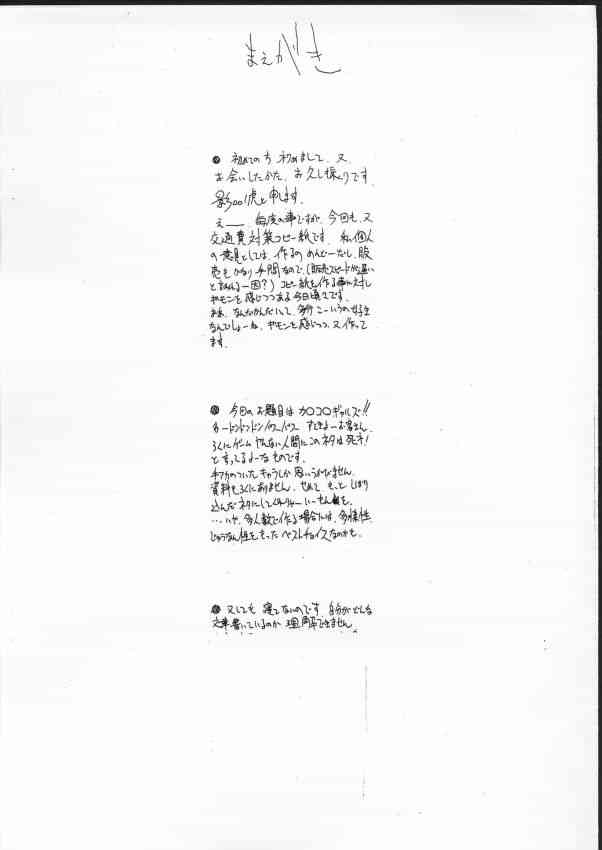 まえがき
● 初めての方 初めまして、又、
お会いしたかた、お久し振りです。
影001虎と申します。
え―― 毎度の事ですが、今回も又
交通費対策コピー紙です。私個人
の意見としては、作るのめんどーだし、販
売もかなり手間なので、(販売スピードが遅い
コピー紙を作る事に対し
ギモンを感じつつある今日頃さです。
まあ、なんだかんだいって、
なんでしょーね、ギモンを感じつつ、又作って
ます。
● 今回のお題目はカプコンギャルズ!!
ろくにゲームやんない人間にこのネタは死ネ!
と言ってるよーなものです。
キャラしか思いうかびません。
資料もろくにありません。せめて、もっと しぼり
込んだネタにしてくれりゃー いーもんを。
…いや、多人数で作る場合には、多様性、
じゅうなん性をもった ベストチョイスなのかも。
● 又しても 寝てないのです 自分がどんな
文章書いているのか 理解できません